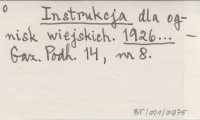 Instrukcja dla og-
nisk wiejskich. 1926... —
Gaz. Podh. 14, nr 8.
BT/011/0475